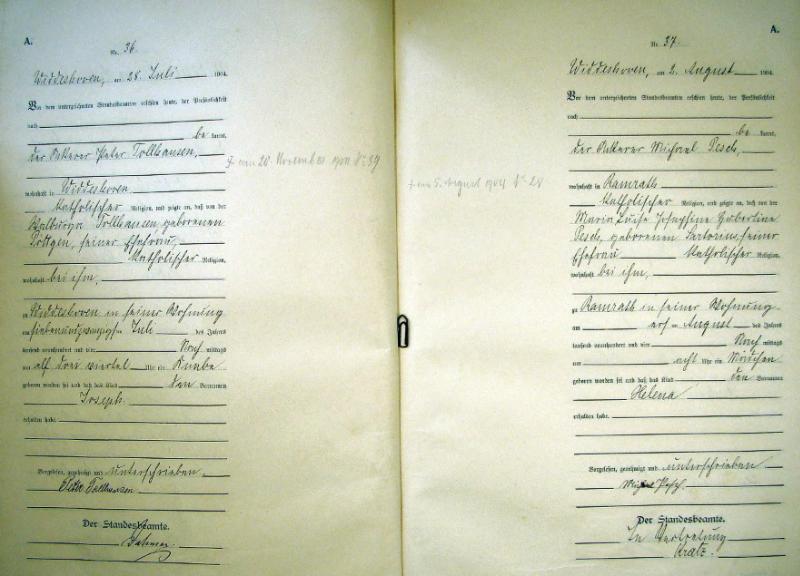 A.
Nr. 36.
Widdeshoven, am 28. Juli 1904.
Vor dem unterzeichneten Standesbeamten erschien heute, der Persönlichkeit
nach
be kannt,
der Ackerer Peter Tollhausen,
wohnhaft in Widdeshoven
katholischer Religion, und zeigte an, daß von der
Walburga Tollhausen, geborenen
Pöttgen, seiner Ehefrau,
katholischer Religion,
wohnhaft bei ihm,
zu Widdeshoven in seiner Wohnung
am siebenundzwanzigsten Juli des Jahres
tausend neunhundert und vier Nach mittags
um elf drei viertel Uhr ein Knabe
geboren worden sei und daß das Kind den Vornamen
Joseph
erhalten habe.
Vorgelesen, genehmigt und unterschrieben
Peter Tollhausen
Der Standesbeamte.
† am 20. November 1904 Nr. 39
A.
Nr. 37.
Widdeshoven, am 2. August 1904.
Vor dem unterzeichneten Standesbeamten erschien heute, der Persönlichkeit
nach
be kannt,
der Ackerer Michael Pesch,
wohnhaft in Ramrath
katholischer Religion, und zeigte an, daß von der
Maria Luise Josephine Hubertine
Pesch, geborenen Sartorius, seiner
Ehefrau katholischer Religion,
wohnhaft bei ihm,
zu Ramrath in seiner Wohnung
am ersten August des Jahres
tausend neunhundert und vier Nach mittags
um acht Uhr ein Mädchen
geboren worden sei und daß das Kind den Vornamen
Helena
erhalten habe.
Vorgelesen, genehmigt und unterschrieben
Michael Pesch.
Der Standesbeamte.
In Vertretung
Kratz.
† am 5. August 1904 Nr. 28